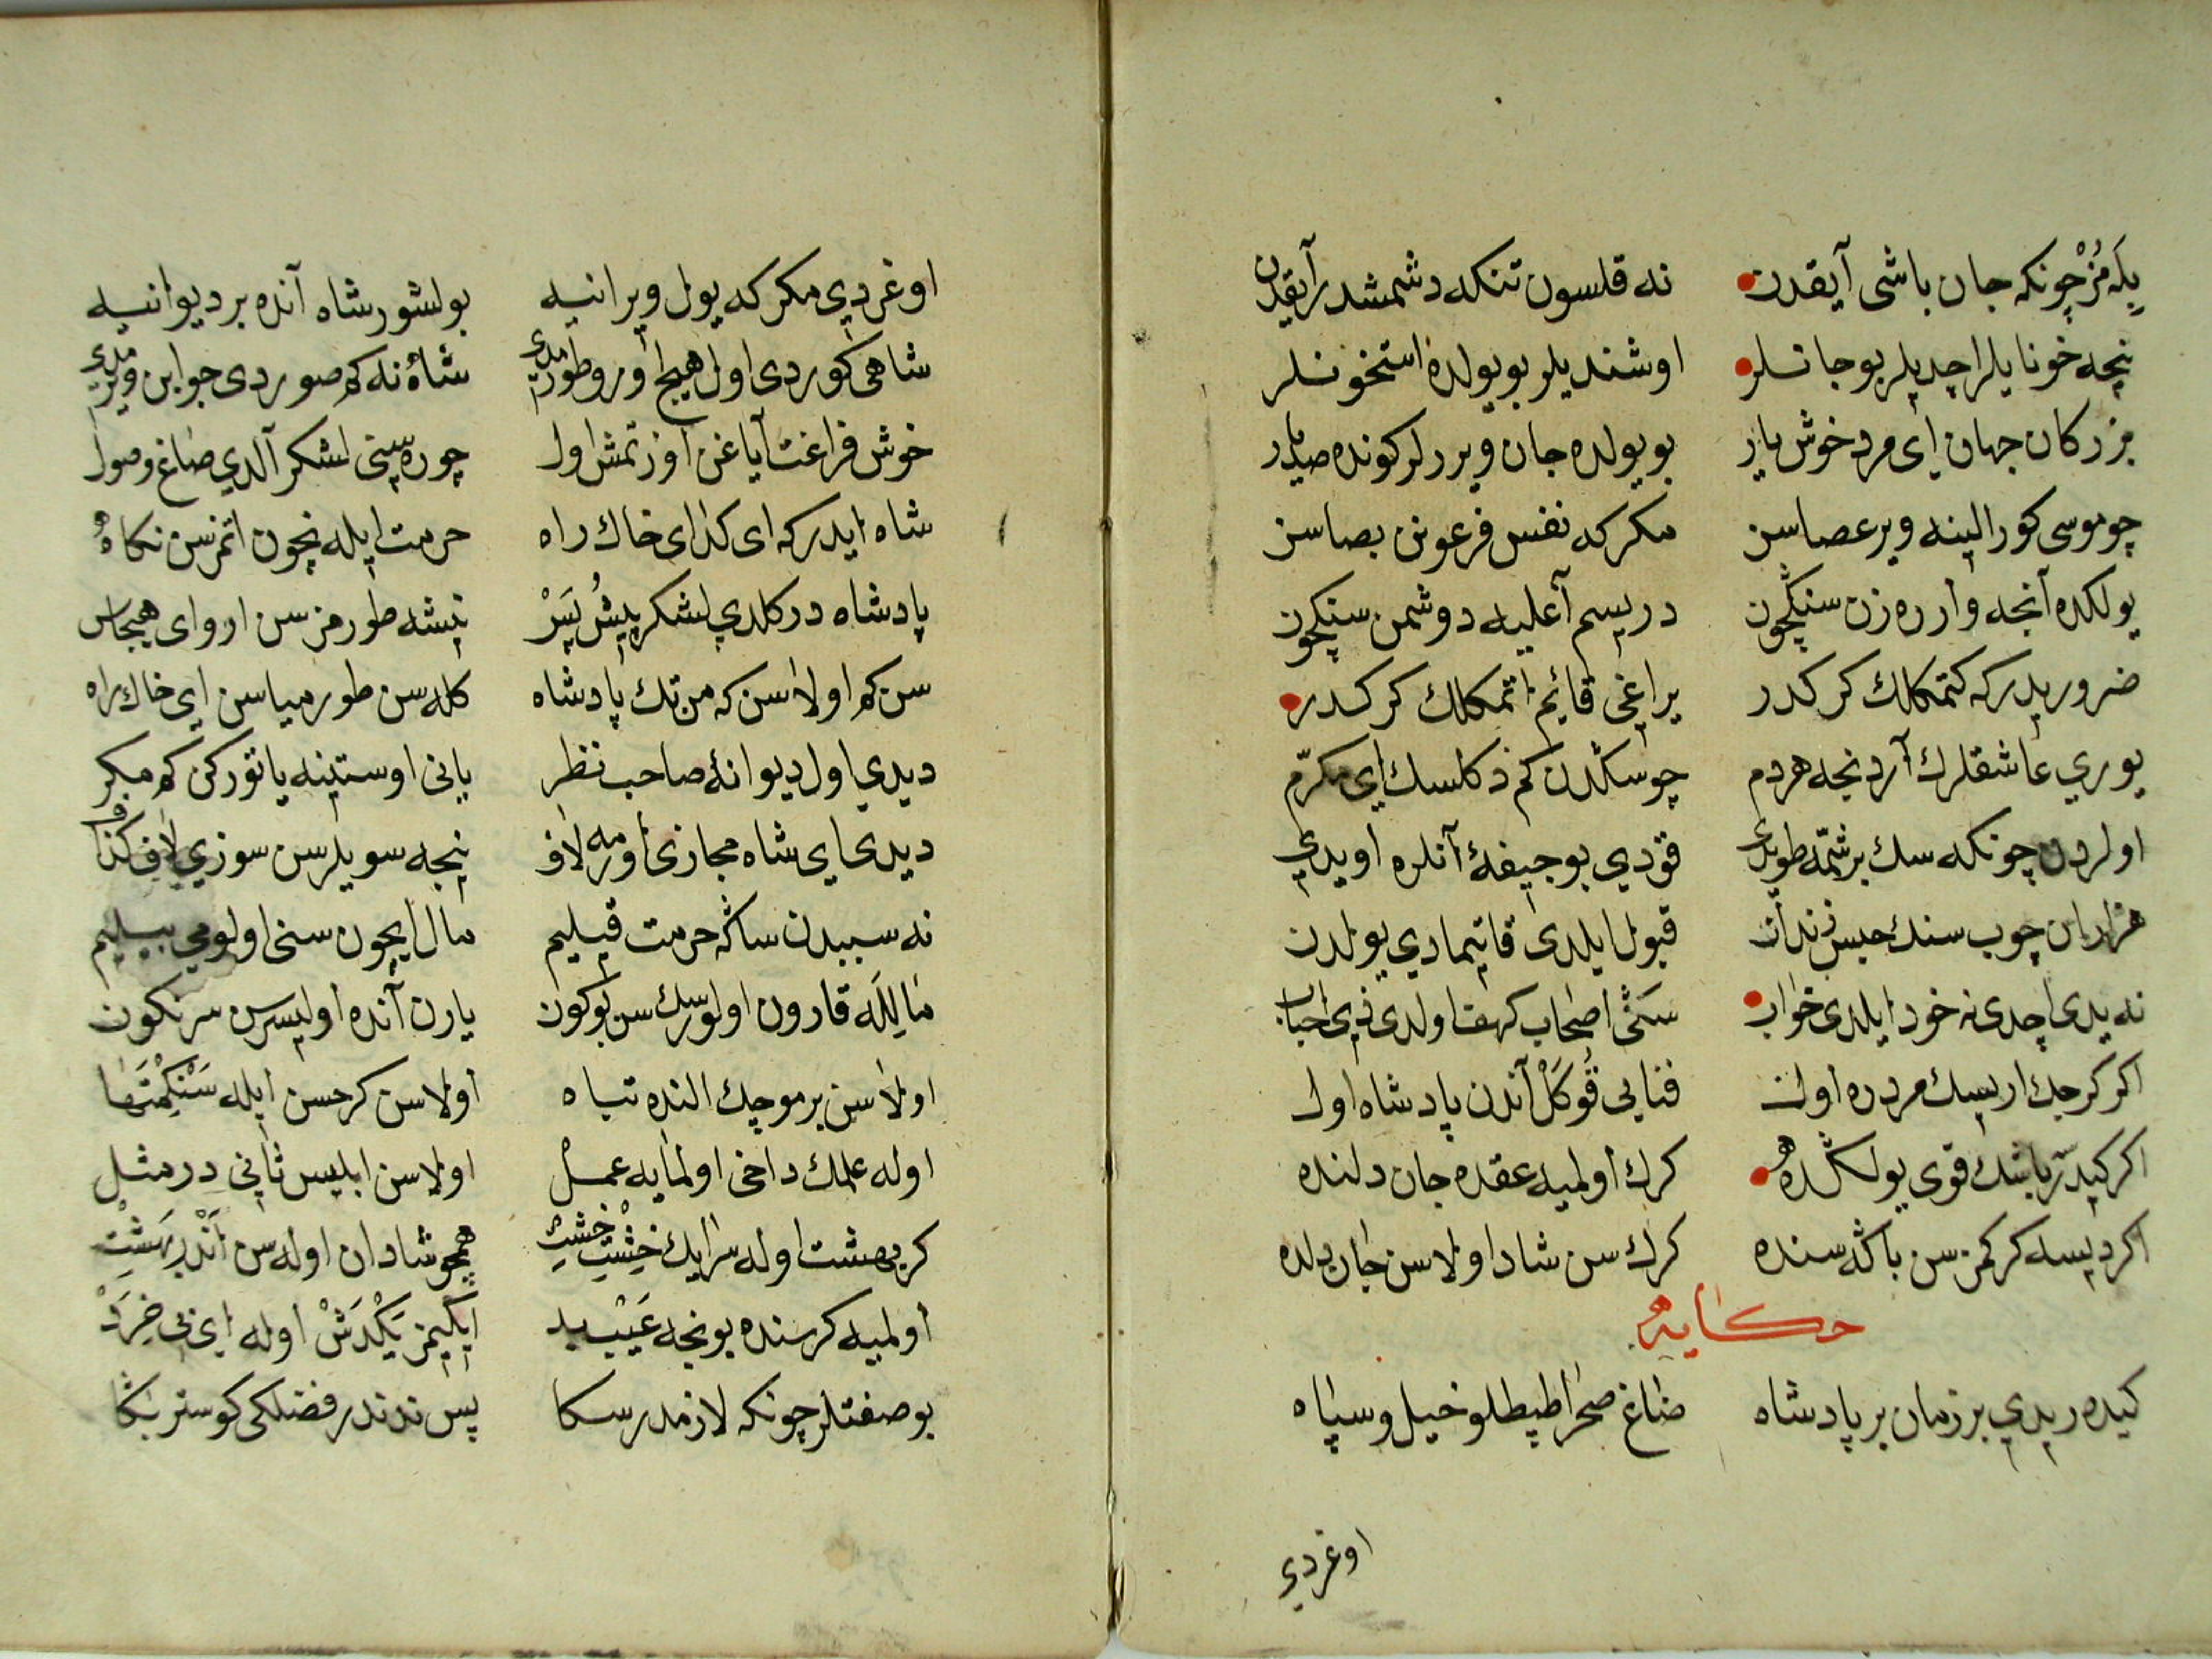 یله‌مز چونکه جان باشی آیقدن نه قلسون تنکه دشمشدر آیقدن
نیچه خونایلر ایچدیلر بو جانلر اوشندیلر بو یولده استخونلر
بزرکان جهان ای مرد خوش یار بو یولده جان ویررلر کونده صد بار
چو موسی کور الینه ویر عصاسن مکر که نفس فرعونن بصاسن
یولکده آنجه وار ره زن سنکچون دریسم آغلیه دوشمن سنکچون
ضروریدر که کتمکلك کرکدر یراغی قائم اتمکلك کرکدر
یوری عاشقلرك آردنجه هردم چو سکدن کم دکلسك ای مکرم
اولردن چونکه سك بر شمه طویدی قودی بو جیفه آنلره اویدی
هزاران چوب سنك قبول ایلدی قاتیمادی یولدن
نه یدی ایچدی نه خود ایلدی خواب سکی اصحاب کهف اولدی
اکر کرچك اریسك مردره اول فنایی قو کل آندن پادشاه اول
اکر کیدر باشك قوی یولکده کرك اولمیه عقده جان دلنده
اکر دیسه کرکمزسن باکه سنده کرك سن شاد اولاسن جان دلده
حکایه
کیده ریدی بر زمان بر پادشاه طاغ صحرا طپطلو خیل و سپاه
اوغردی
اوغردی مکر که یول ویرانیه بولشور شاه آنده بر دیوانیه
شاهی کوردی اول هیچ اورو طورمدی شاه نه کم صوردی جوابن ویرمدی
خوش فراغت آیاغن اوزتمش اول چوره سینی لشکر آلدی صاغ و صول
شاه ایدر که ای کدای خاك راه حرمت ایله نچون اتمزسن نکاه
پادشاه در کلدی لشکر پیش پس نیشه طورمزسن ارو ای هیچ کس
سن کم اولاسن که من تك پادشاه کله سن طورمیاسن ای خاك راه
دیدی اول دیوانۀ صاحب نظر یانی اوستینه یاتورکن کم مکر
دیدی ای شاه مجازی اورمه لاف نیجه سویلرسن سوزی لاف کذاف
نه سببدن ساکه حرمت قیلیم مال ایچون سنی اولومی بیلیم
مالیله قارون اولورسك سن بوکون یارن آنده اولیسرسن سرنکون
اولاسن بر موجك النده تباه اولاسن کرحسن ایله
اوله علمك داخی اولمایه عمل اولاسن ابلیس ثانی در مثل
کر بهشت اوله سرایك خشت خشت همچو شادان اوله سن اندر بهشت
اولمیه کر سنده بونجه عیب بد ایکیمز یکدش اوله ای بی خرد
بو صفتلر چونکه لازمدر سکا پس نه‌دندر فضلکی کوستر بکا